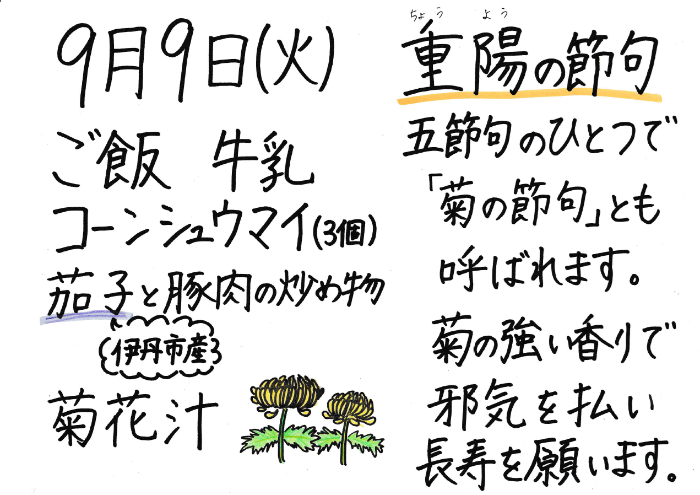 9月9日(火)
ご飯 牛乳
コーンシュウマイ(3個)
茄子と豚肉の炒め物
伊丹市産
菊花汁
ちょう よう
重陽の節句
五節句のひとつで
「菊の節句」とも
呼ばれます。
菊の強い香りで
邪気を払い
長寿を願います。